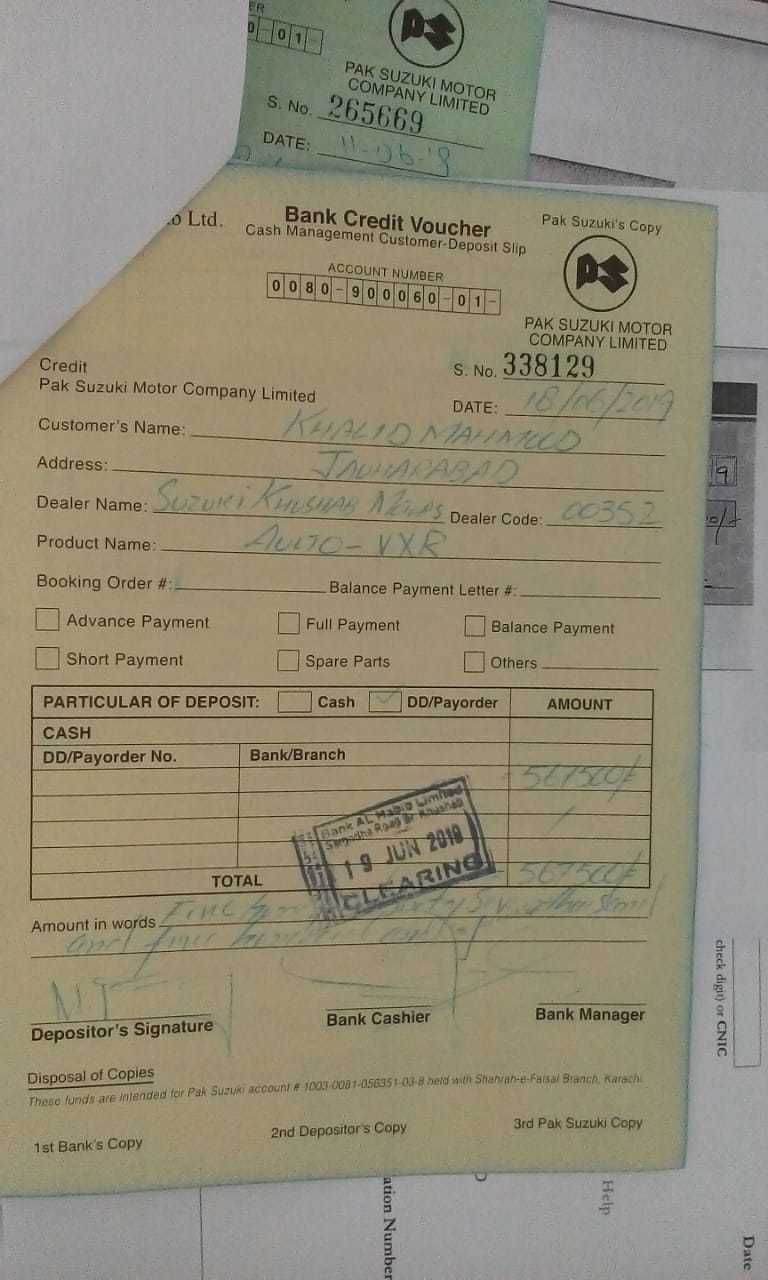 ER
0-01-
PS
PAK SUZUKI MOTOR
COMPANY LIMITED
S. No. 265669
DATE: 11-06-19
o Ltd.
Bank Credit Voucher
Cash Management Customer-Deposit Slip
Pak Suzuki's Copy
ACCOUNT NUMBER
0080-900060-01-
PS
PAK SUZUKI MOTOR
COMPANY LIMITED
Credit
S. No. 338129
Pak Suzuki Motor Company Limited
DATE: 18/06/2019
Customer's Name: KHALID MAHMOOD
Address: JAUHARABAD
Dealer Name: SUZUKI KHUSHAB MOTORS Dealer Code: 00352
Product Name: AULTO-VXR
Booking Order #: Balance Payment Letter #:
Advance Payment Full Payment Balance Payment
Short Payment Spare Parts Others
PARTICULAR OF DEPOSIT: Cash DD/Payorder AMOUNT
CASH
DD/Payorder No. Bank/Branch
567500/-
Bank AL Habib Limited
Sargodha Road Br. Khushab
19 JUN 2019
CLEARING
TOTAL 567500/-
Amount in words Five thousand
and five hundred
Depositor's Signature Bank Cashier Bank Manager
Disposal of Copies
These funds are intended for Pak Suzuki account # 1003-0081-056351-03-8 held with Shahrah-e-Faisal Branch, Karachi.
1st Bank's Copy 2nd Depositor's Copy 3rd Pak Suzuki Copy
9
0/-
check digit) or CNIC
ation Number
Help
Date